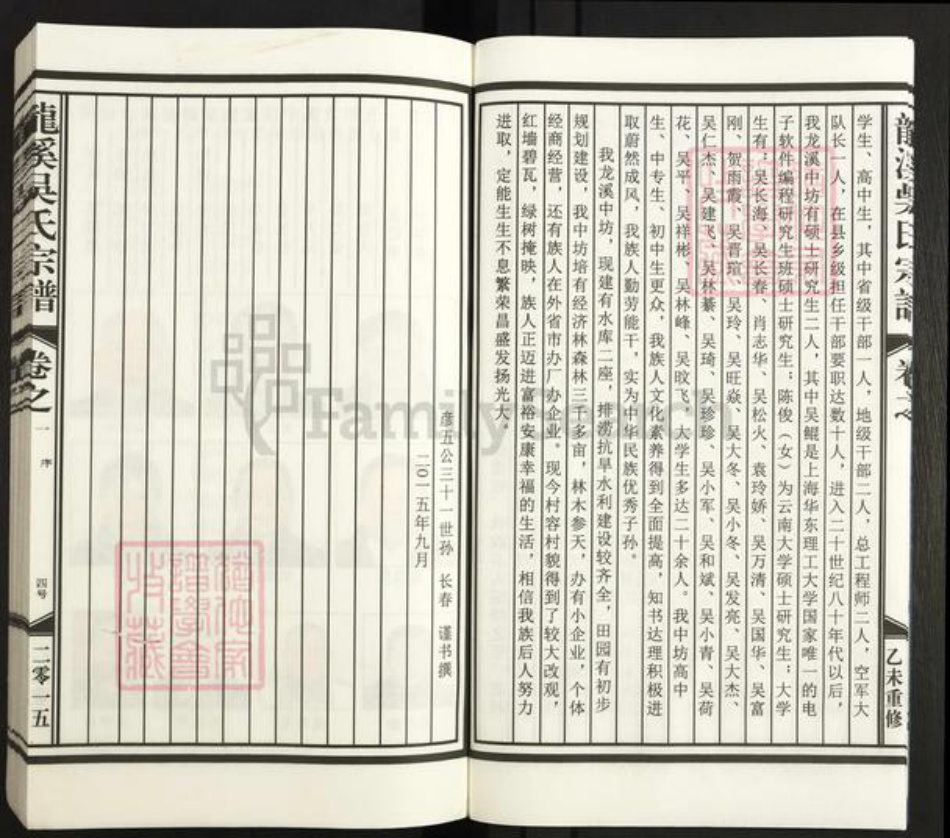 龍溪吳氏宗譜
乙未重修
学生、高中生，其中省级干部一人，地级干部二人，总工程师二人，空军大
队长一人，在县乡级担任干部要职达数十人，进入二十世纪八十年代以后，
我龙溪中坊有硕士研究生二人，其中吴鲲是上海华东理工大学国家唯一的电
子软件编程研究生班硕士研究生；陈俊（女）为云南大学硕士研究生；大学
生有：吴长海、吴长春、肖志华、吴松火、袁玲娇、吴万清、吴国华、吴富
刚、贺雨霞、吴晋瑄、吴玲、吴旺焱、吴大冬、吴小冬、吴发亮、吴大杰、
吴仁杰、吴建飞、吴林綦、吴琦、吴珍珍、吴小军、吴和斌、吴小青、吴荷
花、吴平、吴祥彬、吴林峰、吴旼飞，大学生多达二十余人。我中坊高中
生、中专生、初中生更众，我族人文化素养得到全面提高，知书达理积极进
取蔚然成风，我族人勤劳能干，实为中华民族优秀子孙。
我龙溪中坊，现建有水库二座，排涝抗旱水利建设较齐全，田园有初步
规划建设，我中坊培有经济林森林三千多亩，林木参天，办有小企业，个体
经商经营，还有族人在外省市办厂办企业。现今村容村貌得到了较大改观，
红墙碧瓦，绿树掩映，族人正迈进富裕安康幸福的生活，相信我族后人努力
进取，定能生生不息繁荣昌盛发扬光大。
彦五公三十一世孙 长春 谨书撰
二〇一五年九月
龍溪吳氏宗譜
卷之一
序
四号
二零一五
FamilySearch